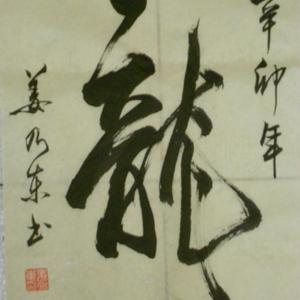 辛卯年
龍
姜乃東书